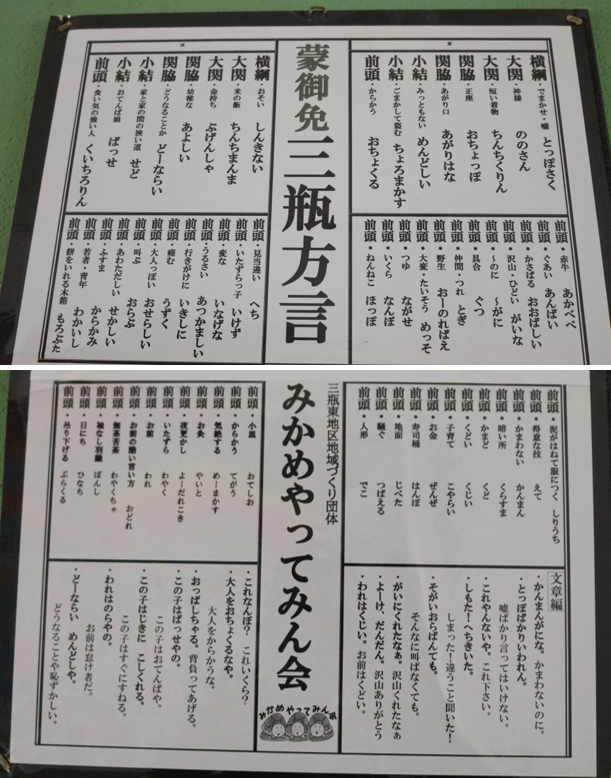 東
横綱・でまかせ・嘘 とっぽさく
大関・神様 ののさん
大関・短い着物 ちんちくりん
関脇・正座 おちょっぽ
関脇・あがり口 あがりはな
小結・みっともない めんどしい
小結・ごまかして盗む ちょろまかす
前頭・からかう おちょくる
前頭・赤牛 あかべべ
前頭・ぐあい あんばい
前頭・かさばる おおばしい
前頭・沢山・ひどい がいな
前頭・～のに ～がに
前頭・具合 ぐつ
前頭・仲間・つれ とぎ
前頭・野生 おーのればえ
前頭・大変・たいそう めっそ
前頭・つゆ ながせ
前頭・いくら なんぼ
前頭・ねんねこ ほっぽ
蒙御免三瓶方言
西
横綱・おそい しんきない
大関・米の飯 ちんちまんま
大関・金持ち ぶげんしゃ
関脇・幼稚な あよしい
関脇・どうなることか どーならい
小結・家と家の間の狭い道 せど
小結・おてんば娘 ばっせ
前頭・食い気の強い人 くいちろりん
前頭・見当違い へち
前頭・いたずらっ子 いけず
前頭・変な いなげな
前頭・うるさい あつかましい
前頭・行きがけに いきしに
前頭・痛む うずく
前頭・大人っぽい おせらしい
前頭・叫ぶ おらぶ
前頭・あわただしい せかしい
前頭・ふすま からかみ
前頭・若者・青年 わかいし
前頭・餅をいれる木箱 もろぶた
前頭・泥がはねて服につく しりうち
前頭・得意な技 えて
前頭・かまわない かんまん
前頭・暗い所 くらすま
前頭・かまど くど
前頭・くどい くじい
前頭・子育て こやらい
前頭・お金 ぜんぜ
前頭・寿司桶 はんぼ
前頭・地面 じべた
前頭・騒ぐ つばえる
前頭・人形 でこ
文章編
・かんまんがにな。かまわないのに。
・とっぽばかりいわれん。
嘘ばかり言ってはいけない。
・これやんないや。これ下さい。
・しもた！へちきいた。
しまった！違うこと聞いた！
・そがいおらばんでも。
そんなに叫ばなくても。
・がいにくれたなぁ。沢山くれたなぁ
・よーけ、だんだん。沢山ありがとう
・われはくじい。お前はくどい。
三瓶東地区地域づくり団体
みかめやってみん会
みかめやってみん会
前頭・小皿 おてしお
前頭・からかう てがう
前頭・気絶する めーまかす
前頭・お灸 やいと
前頭・夜更かし よーだれこき
前頭・いたずら わやく
前頭・お前 われ
前頭・お前の酷い言い方 おどれ
前頭・無茶苦茶 わやくちゃ
前頭・袖なし羽織 ぽんし
前頭・日にち ひなち
前頭・吊り下げる ぶらくる
・これなんぼ？ これいくら？
・大人をおちょくるなや。
大人をからかうな。
・おっぱしちゃる。背負ってあげる。
・この子はばっせやの。
この子はおてんばや。
・この子はじきに こじくれる。
この子はすぐにすねる。
・われはのらやの。
お前は怠け者だ。
・どーならい めんどしや。
どうなることや恥ずかしい。